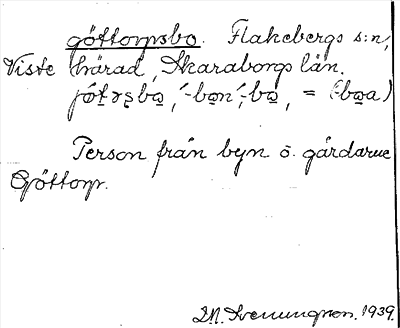 göttorpsbo. Flakebergs s:n,
Viste härad, Skaraborgs län.
Person från byn o. gårdarne
Göttorp.
Svenungson. 1939.